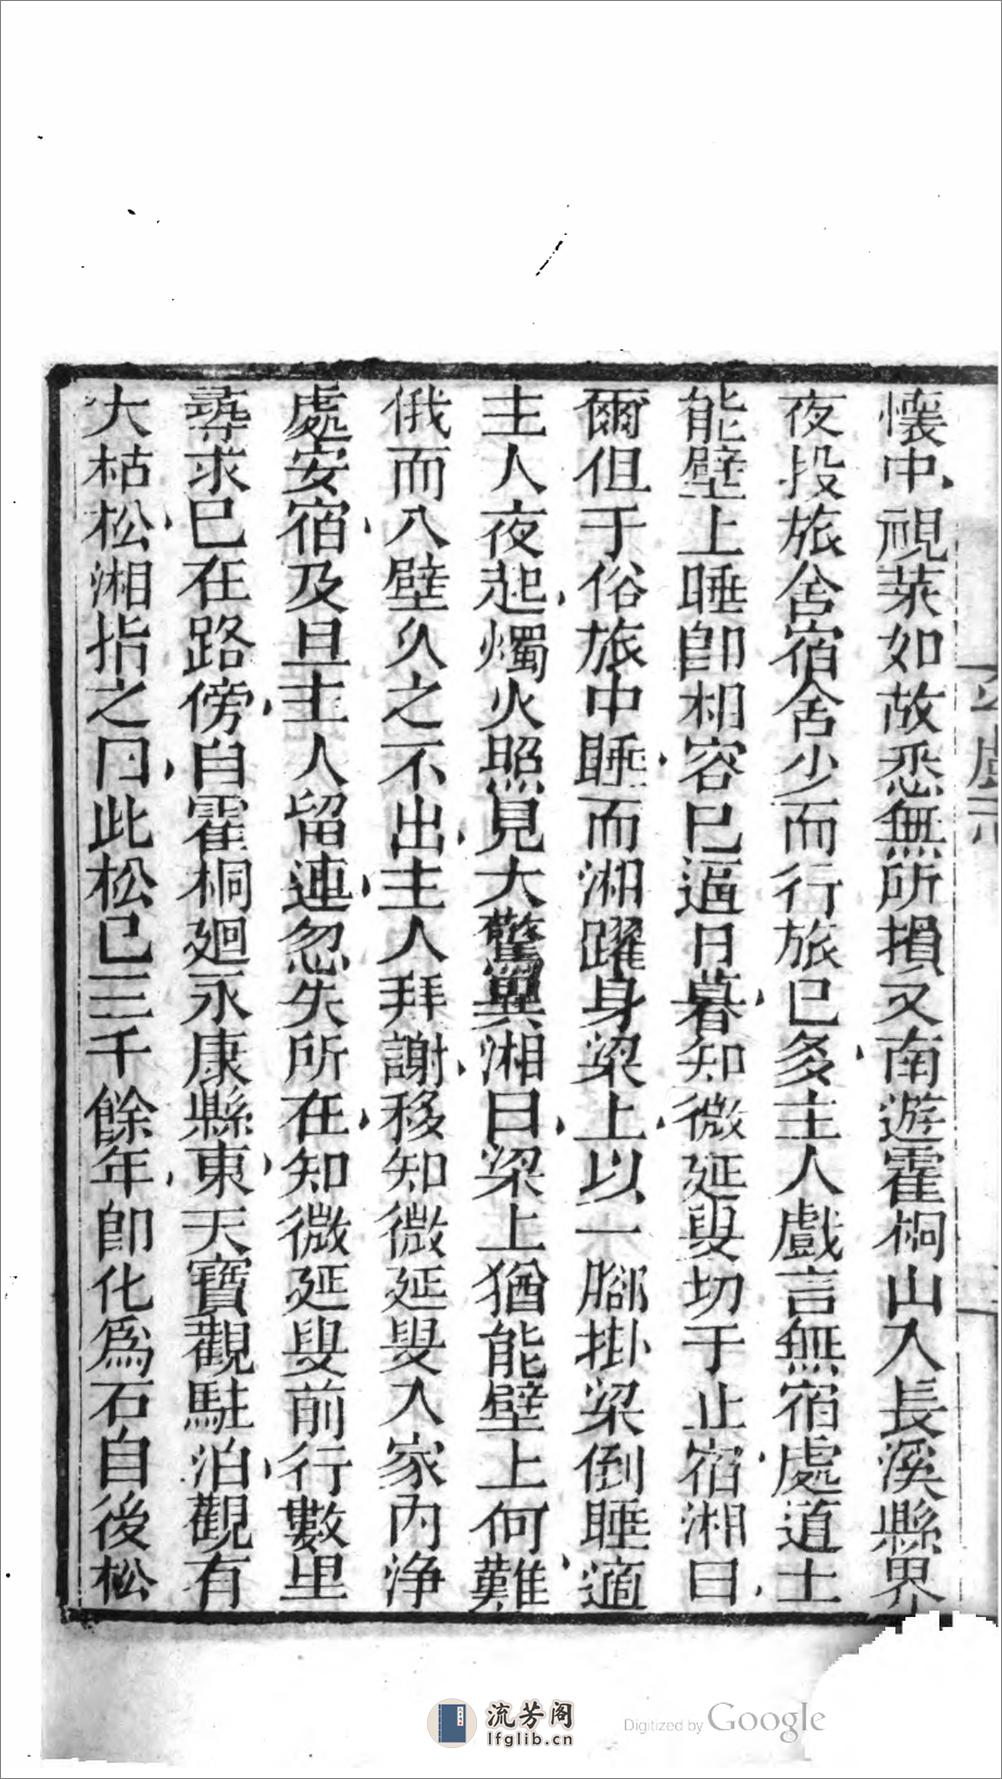 懷中視菜如故悉無所損又南遊霍桐山入長溪縣界
夜投旅舍宿舍少而行旅已多主人戲言無宿處道士
能壁上睡卽相容巳逼日暮知微延叟切于止宿湘曰
爾但于俗旅中睡而湘躍身梁上以一腳掛梁倒睡適
主人夜起燭火照見大驚異湘曰梁上猶能壁上何難
俄而入壁久之不出主人拜謝移知微延叟入家內淨
處安宿及旦主人留連忽失所在知微延叟前行數里
尋求已在路傍自霍桐廻永康縣東天寶觀駐泊觀有
大枯松湘指之曰此松已三千餘年卽化爲石自後松
流芳阁
lfglib.cn
Digitized by Google